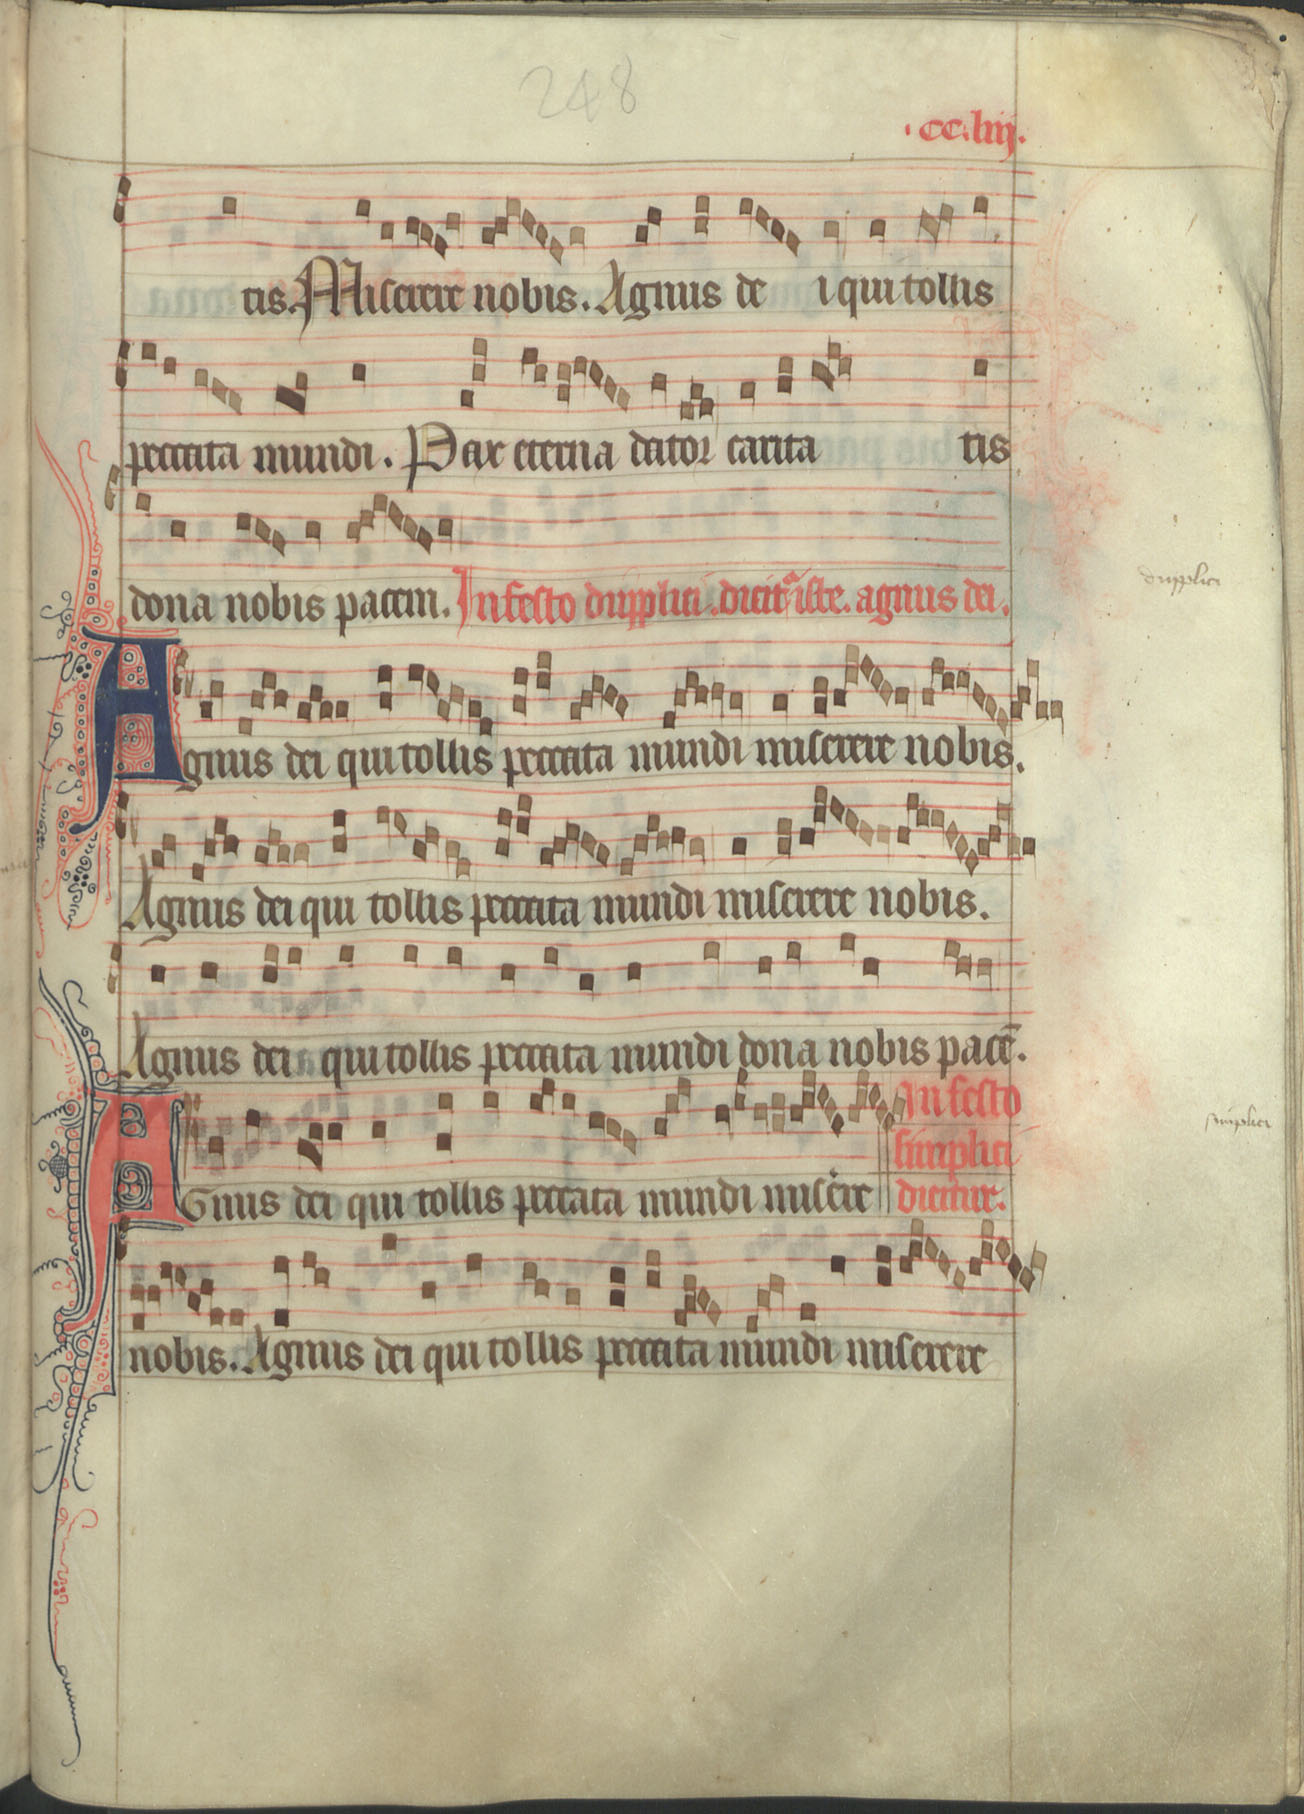 248
.cc.liij.
tis. Miserere nobis. Agnus de i qui tollis
peccata mundi. Pax eterna dator carita tis
dona nobis pacem. In festo dupplici. dicitᷣ iste. agnus dei.
dupplici
Agnus dei qui tollis peccata mundi miserere nobis.
Agnus dei qui tollis peccata mundi miserere nobis.
Agnus dei qui tollis peccata mundi dona nobis pacē.
In festo
simplici
simplici
AGnus dei qui tollis peccata mundi misere
dicitur.
nobis. Agnus dei qui tollis peccata mundi miserere